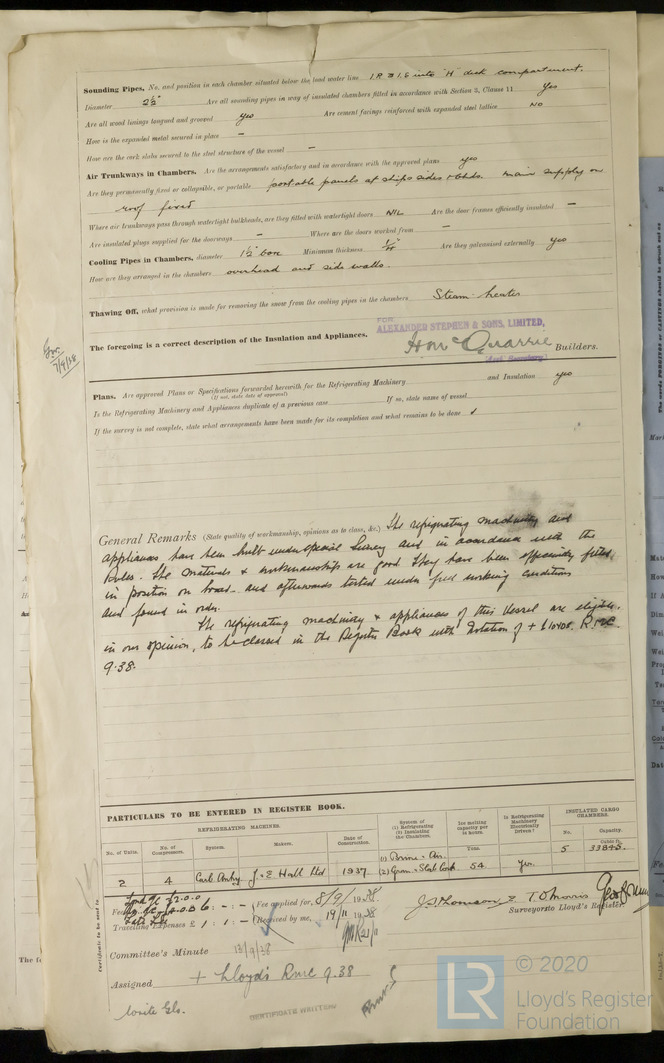 Sounding Pipes, No. and position in each chamber situated below the load water line 1.P & 1.S into "H" deck compartment.
Diameter 2½" Are all sounding pipes in way of insulated chambers fitted in accordance with Section 3, Clause 11 yes
Are all wood linings tongued and grooved yes Are cement facings reinforced with expanded steel lattice No
How is the expanded metal secured in place –
How are the cork slabs secured to the steel structure of the vessel –
Air Trunkways in Chambers. Are the arrangements satisfactory and in accordance with the approved plans yes
Are they permanently fixed or collapsible, or portable portable panels at ships sides & bhds. main supply on
roof fixed
Where air trunkways pass through watertight bulkheads, are they fitted with watertight doors NIL Are the door frames efficiently insulated –
Are insulated plugs supplied for the doorways – Where are the doors worked from –
Cooling Pipes in Chambers, diameter 1½" bore Minimum thickness ¼" Are they galvanised externally yes
How are they arranged in the chambers overhead and side walls.
Thawing Off, what provision is made for removing the snow from the cooling pipes in the chambers Steam heater
FOR
ALEXANDER STEPHEN & SONS, LIMITED,
The foregoing is a correct description of the Insulation and Appliances. Builders.
7/9/38
Plans. Are approved Plans or Specifications forwarded herewith for the Refrigerating Machinery and Insulation yes
(If not, state date of approval)
Is the Refrigerating Machinery and Appliances duplicate of a previous case If so, state name of vessel
If the survey is not complete, state what arrangements have been made for its completion and what remains to be done
General Remarks (State quality of workmanship, opinions as to class, &c.) The refrigerating machinery and
appliances have been built under special Survey and in accordance with the
Rules. The materials & workmanship are good. They have been efficiently fitted
in position on board and afterwards tested under full working conditions
and found in order.
The refrigerating machinery & appliances of this vessel are eligible,
in our opinion, to be classed in the Register Book with Notation of + Lloyds R.M.C.
9.38.
PARTICULARS TO BE ENTERED IN REGISTER BOOK.
REFRIGERATING MACHINES.
System of (1) Refrigerating (2) Insulating the Chambers.
Ice melting capacity per 24 hours.
Is Refrigerating Machinery Electrically Driven?
INSULATED CARGO CHAMBERS.
No. of Units. No. of Compressors. System. Makers. Date of Construction. Tons. No. Capacity. Cubic ft.
2 4 Carb. Anhy. J & E Hall Ltd 1937 (1) Brine & Air. (2) Gran. & Slab Cork. 54 Yes. 5
Fee applied for, 8/9/1938
Travelling Expenses £ 1 : 1 : – Received by me, 19/11 1938
J.S. Thomson & T.D. Morris
Surveyors to Lloyd's Register
Committee's Minute 13/9/38
Assigned + Lloyd's RMC 9.38
Write Gls.
CERTIFICATE WRITTEN
Certificate to be sent to
LR © 2020
Lloyd's Register
Foundation